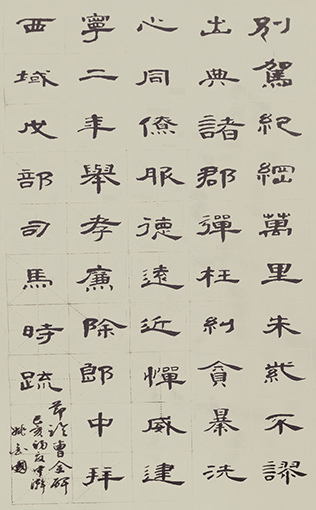 別駕紀綱萬里朱紫不謬
出典諸郡彈枉糾貪暴洗
心同僚服德遠近憚威建
寧二年舉孝廉除郎中拜
西域戊部司馬時疏
節臨曹全碑
己亥初夏中澣
姚國